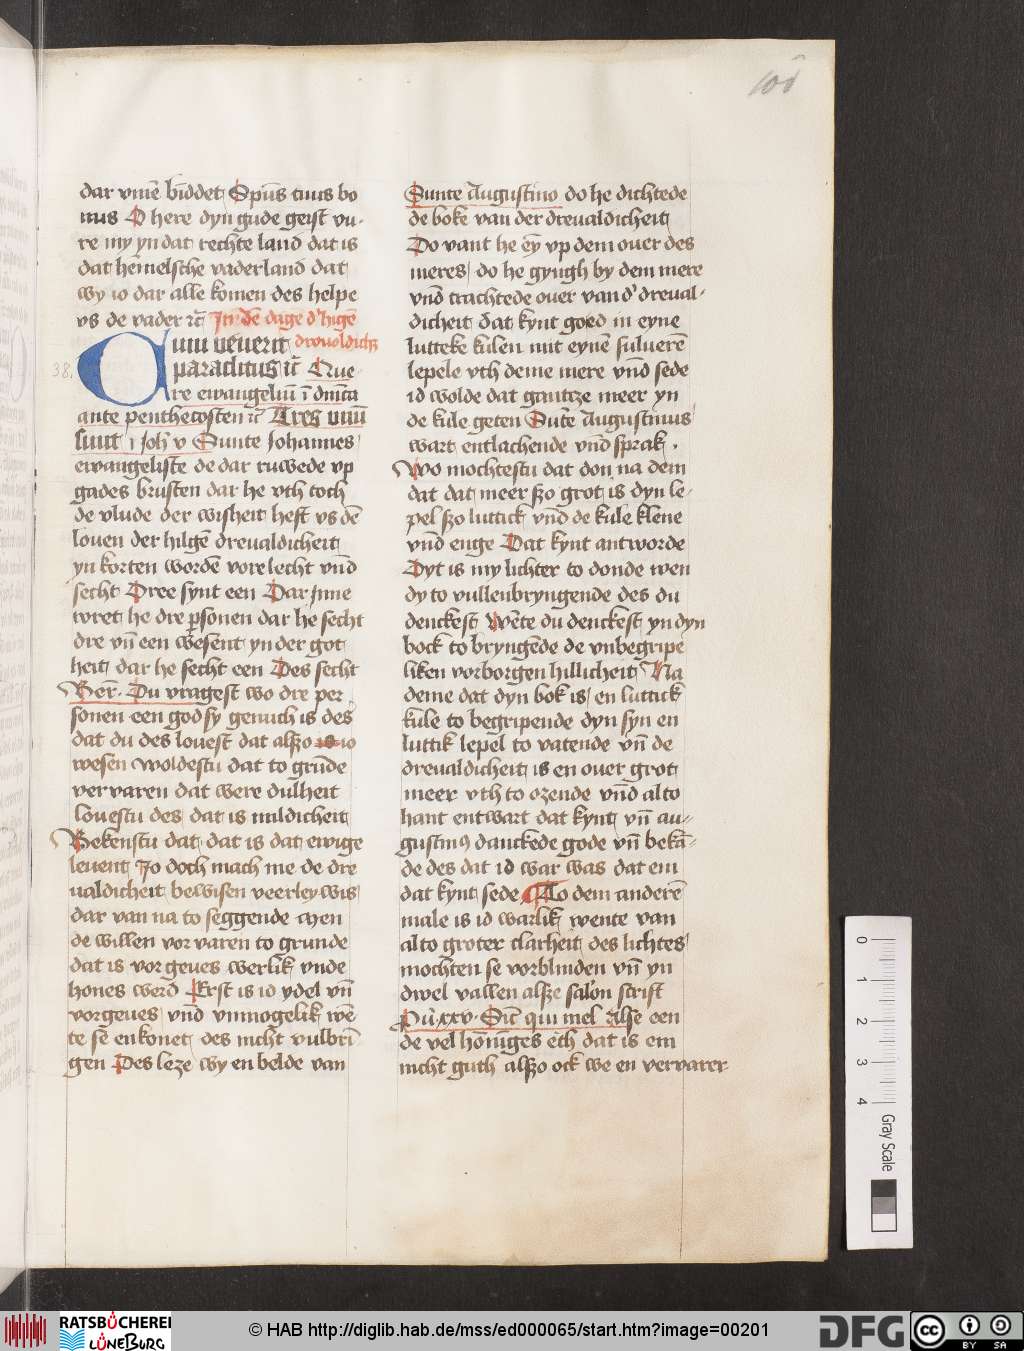 dar vmē biddet Spūs tuus bo
nus O here dyn gude geist vu-
re my yn dat rechte land dat is
dat hēmelsche vaderland dat
wy io dar alle komen des helpe
vs de vader rc̄ In dē dage d' higē
Cum venerit drevoldich
38.
paraclitus rc̄ Que
re ewangeliū ī dn̄ica
ante penthecosten rc̄ Tres vnū
sunt i Joh' v Sunte Johannes
ewangeliste de dar ruwede vp
gades brusten dar he vth toch
de vlude der wisheit heft vs dē
louen der hilgē dreualdicheit
yn korten wordē vorelecht vn̄d
secht Dree synt een Dar ynne
wret he dre psonen dar he secht
dre vn̄ een wesent yn der got
heit dar he secht een Des secht
Ber̄. Du vragest wo dre per
sonen een god sy genuch is des
dat du des louest dat alszo is io
wesen Woldestu dat to grūde
vervaren dat were dulheit
Louestu des dat is mildicheit
Bekenstu dat dat is dat ewige
leuent Jo doch mach me de dre
ualdicheit bewisen veerleywis
dar van na to seggende Men
de willen vorvaren to grunde
dat is vorgeues werlik vnde
hones werd Erst is id ydel vn̄
vorgeues vn̄d vnmogelik wē
te se enkonet des nicht vulbri
gen Des leze wy en belde van
Sunte Augustino do he dichtede
de boke van der dreualdicheit
Do vant he ey vp dem ouer des
meres do he gyngh by dem mere
vn̄d trachtede ouer van d' dreual-
dicheit dat kynt goed in eyne
lutteke kulen mit eynē suluerē
lepele vth deme mere vn̄d sede
id wolde dat gantze meer yn
de kule geten Sūte Augustinus
wart entlachende vn̄d sprak.
Wo mochtestu dat don na dem
dat dat meer szo grot is dyn le-
pel szo luttick vn̄d de kule klene
vn̄d enge Dat kynt antworde
Dyt is my lichter to donde wen
dy to vullenbryngende des du
denckest Wēte du denckest yn dyn
bock to bryngēde de vnbegripe
liken vorborgen hillicheit Na
deme dat dyn bok is en luttick
kule to begripende dyn syn en
luttik lepel to vatende vn̄ de
dreualdicheit is en ouer grot
meer vth to ozende vn̄d al to
hant entwart dat kynt vn̄ au-
gustinꝰ danckede gode vn̄ bekā-
de des dat id war was dat em
dat kynt sede To dem anderē
male is id warlik wente van
alto groter clarheit des lichtes
mochten se vorblinden vn̄ yn
dwel vallen alsze salon scrift
Pū. xxv. Sic̄ qui mel Alse een
de vel hōniges eth dat is em
nicht guth alszo ock we en vervarer
0
1
2
3
4
Gray Scale
RATSBÜCHEREI
LÜNEBURG
© HAB http://diglib.hab.de/mss/ed000065/start.htm?image=00201
DFG
cc
BY SA